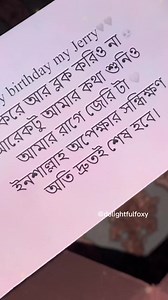 y birthday my Jerry🤍🤍
করে আর ব্লক করিও না
আরেকটু আমার কথা শুনিও
আমার রাগে জেরি টা🤍
ইনশাল্লাহ অপেক্ষার সন্ধিক্ষণ
অতি দ্রুতই শেষ হবে।
@delightfulfoxy